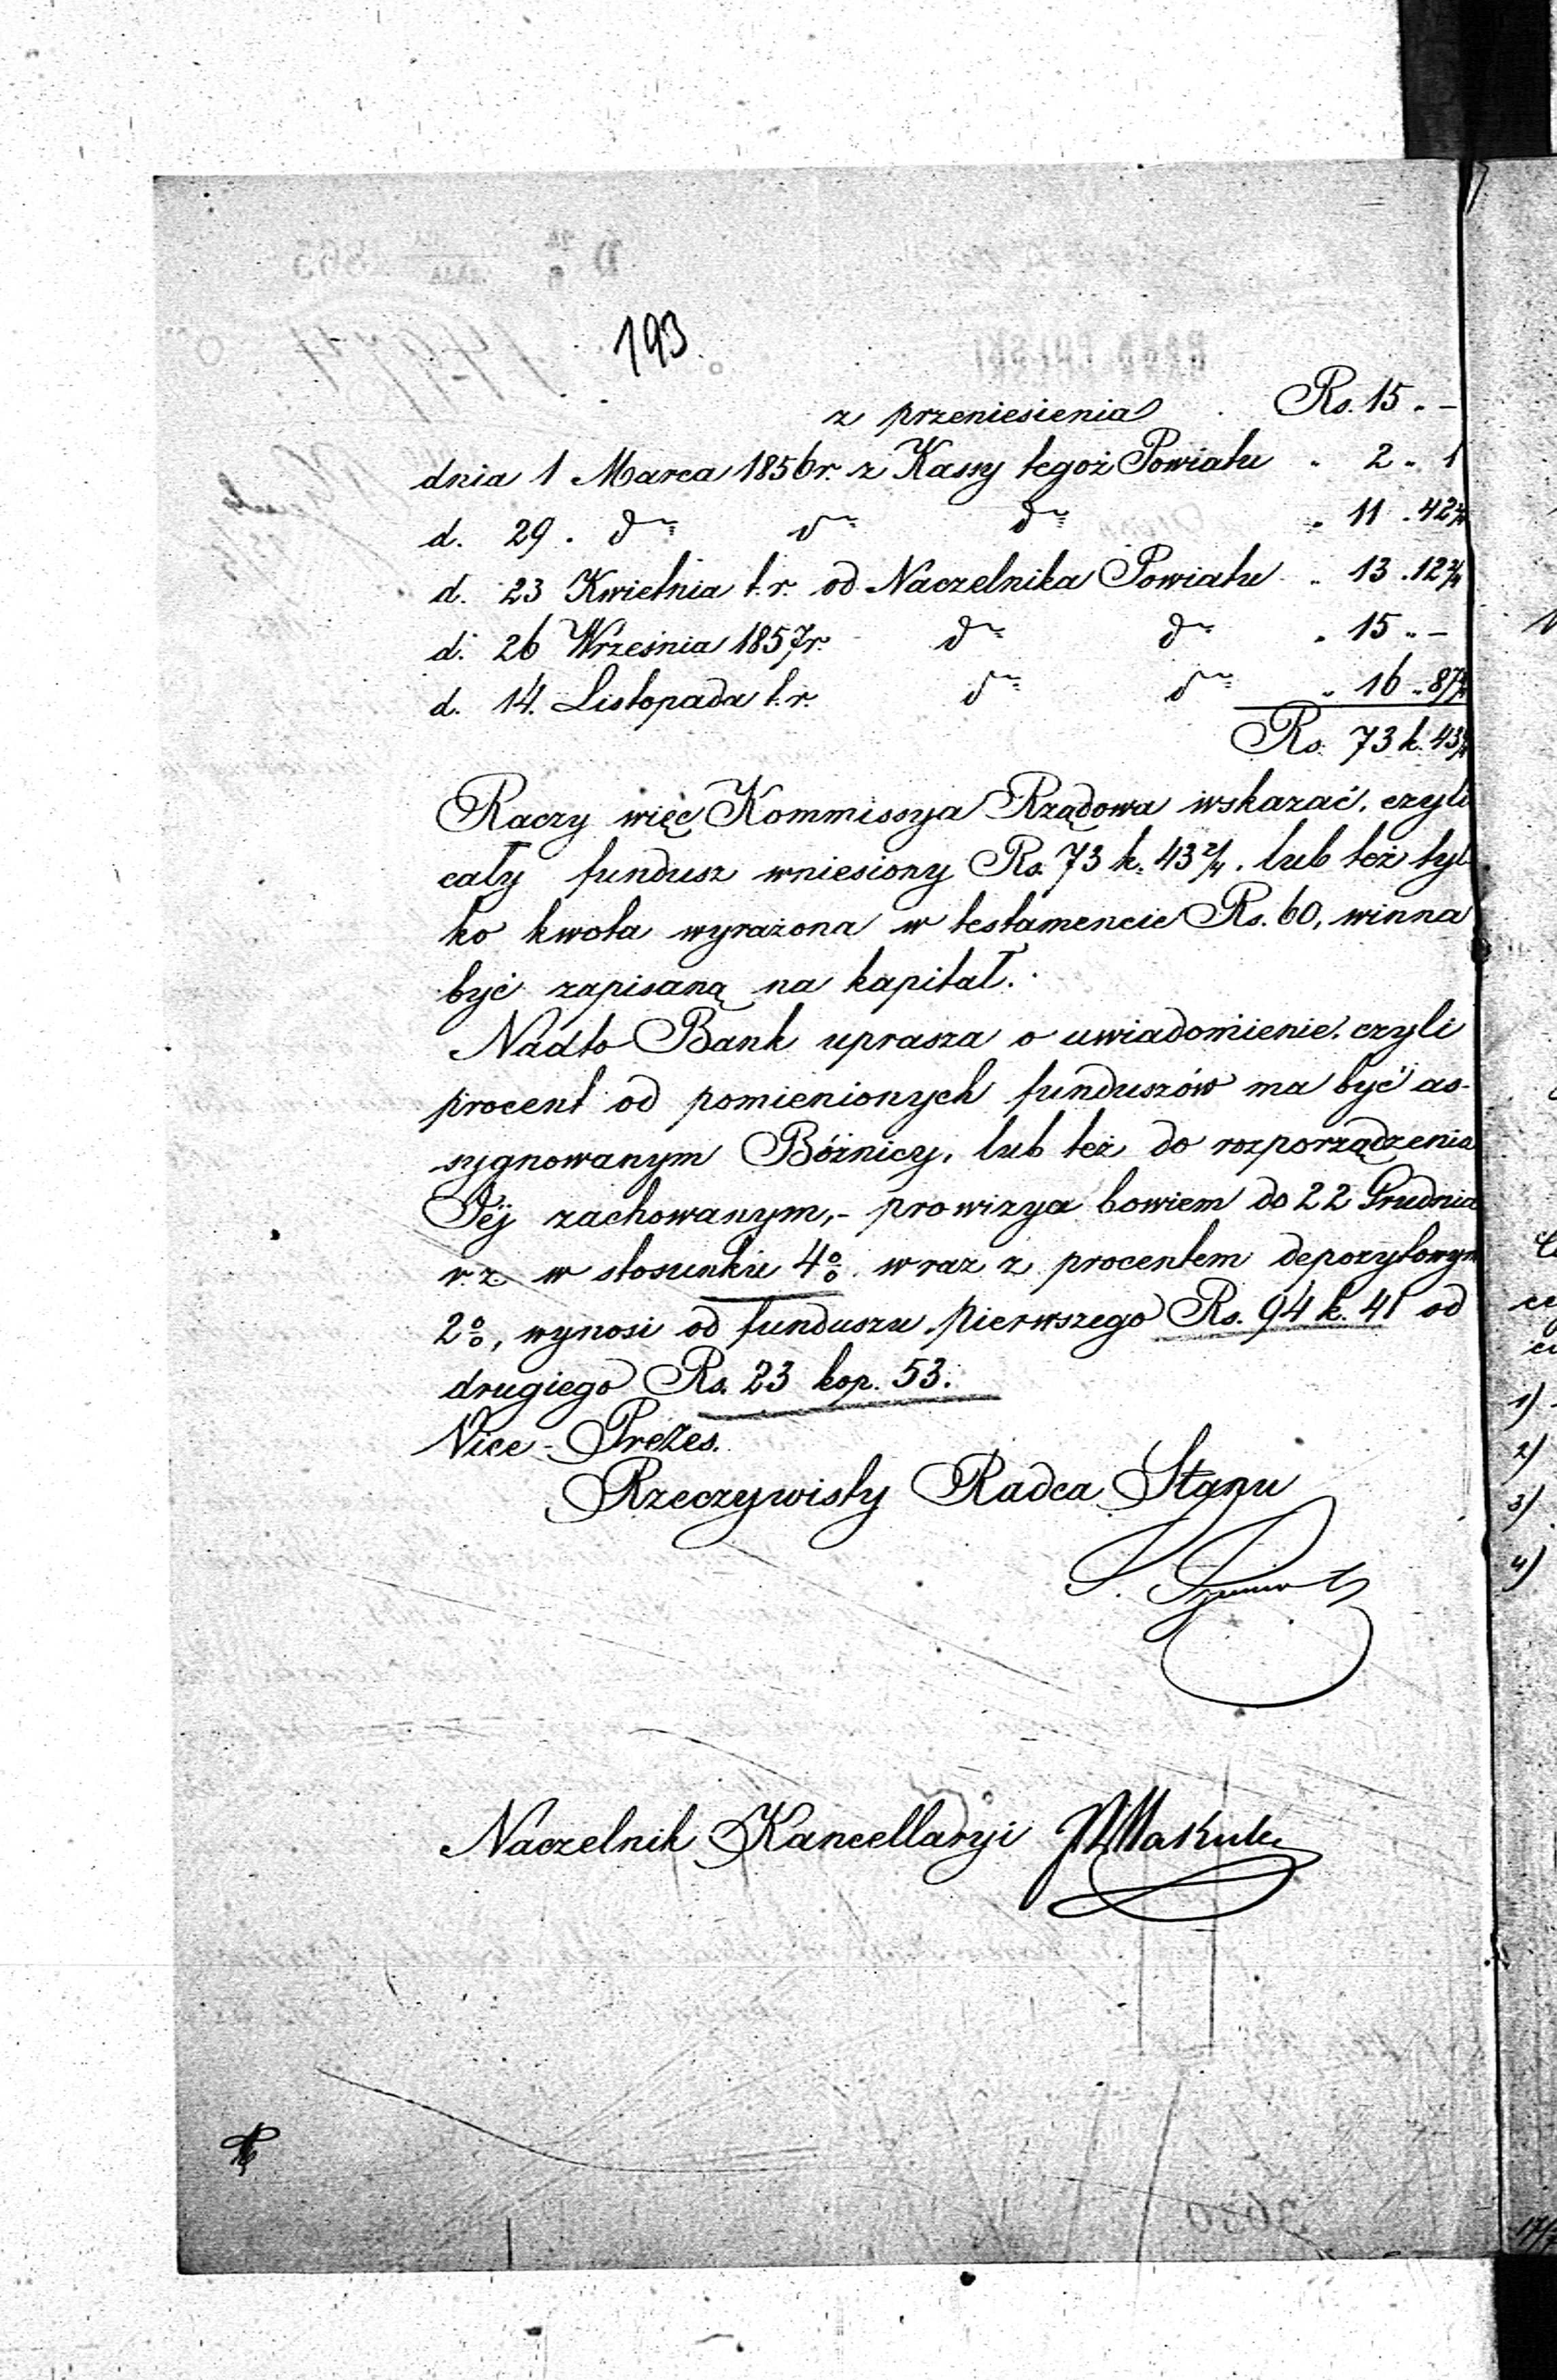 193.
z przeniesienia Rs. 15 " —
dnia 1 Marca 1856 r. z Kassy tegoż Powiatu " 2 " 1
d. 29. dto dto dto " 11 " 42 2/4
d. 23 Kwietnia t. r. od Naczelnika Powiatu " 13 . 12 2/4
d. 26 Września 1857 r. dto dto " 15 " —
d. 14. Listopada t. r. dto dto " 16 " 87 2/4
Rs. 73 k. 43 2/4
Raczy więc Kommissya Rządowa wskazać, czyli
cały fundusz wniesiony Rs. 73 k. 43 2/4. lub też tyl
ko kwota wyrażona w testamencie Rs. 60, winna
być zapisaną na kapitał.
Nadto Bank uprasza o uwiadomienie, czyli
procent od pomienionych funduszów ma być as-
sygnowanym Bóżnicy, lub też do rozporządzenia
Jéj zachowanym,- prowizya bowiem do 22 Grudnia
r. z. w stosunku 4% wraz z procentem depozytowym
2%, wynosi od funduszu pierwszego Rs. 94 k. 41 od
drugiego Rs. 23 kop. 53.
Vice-Prezes.
Rzeczywisty Radca Stanu
Naczelnik Kancellaryi
1)
2)
3)
4)